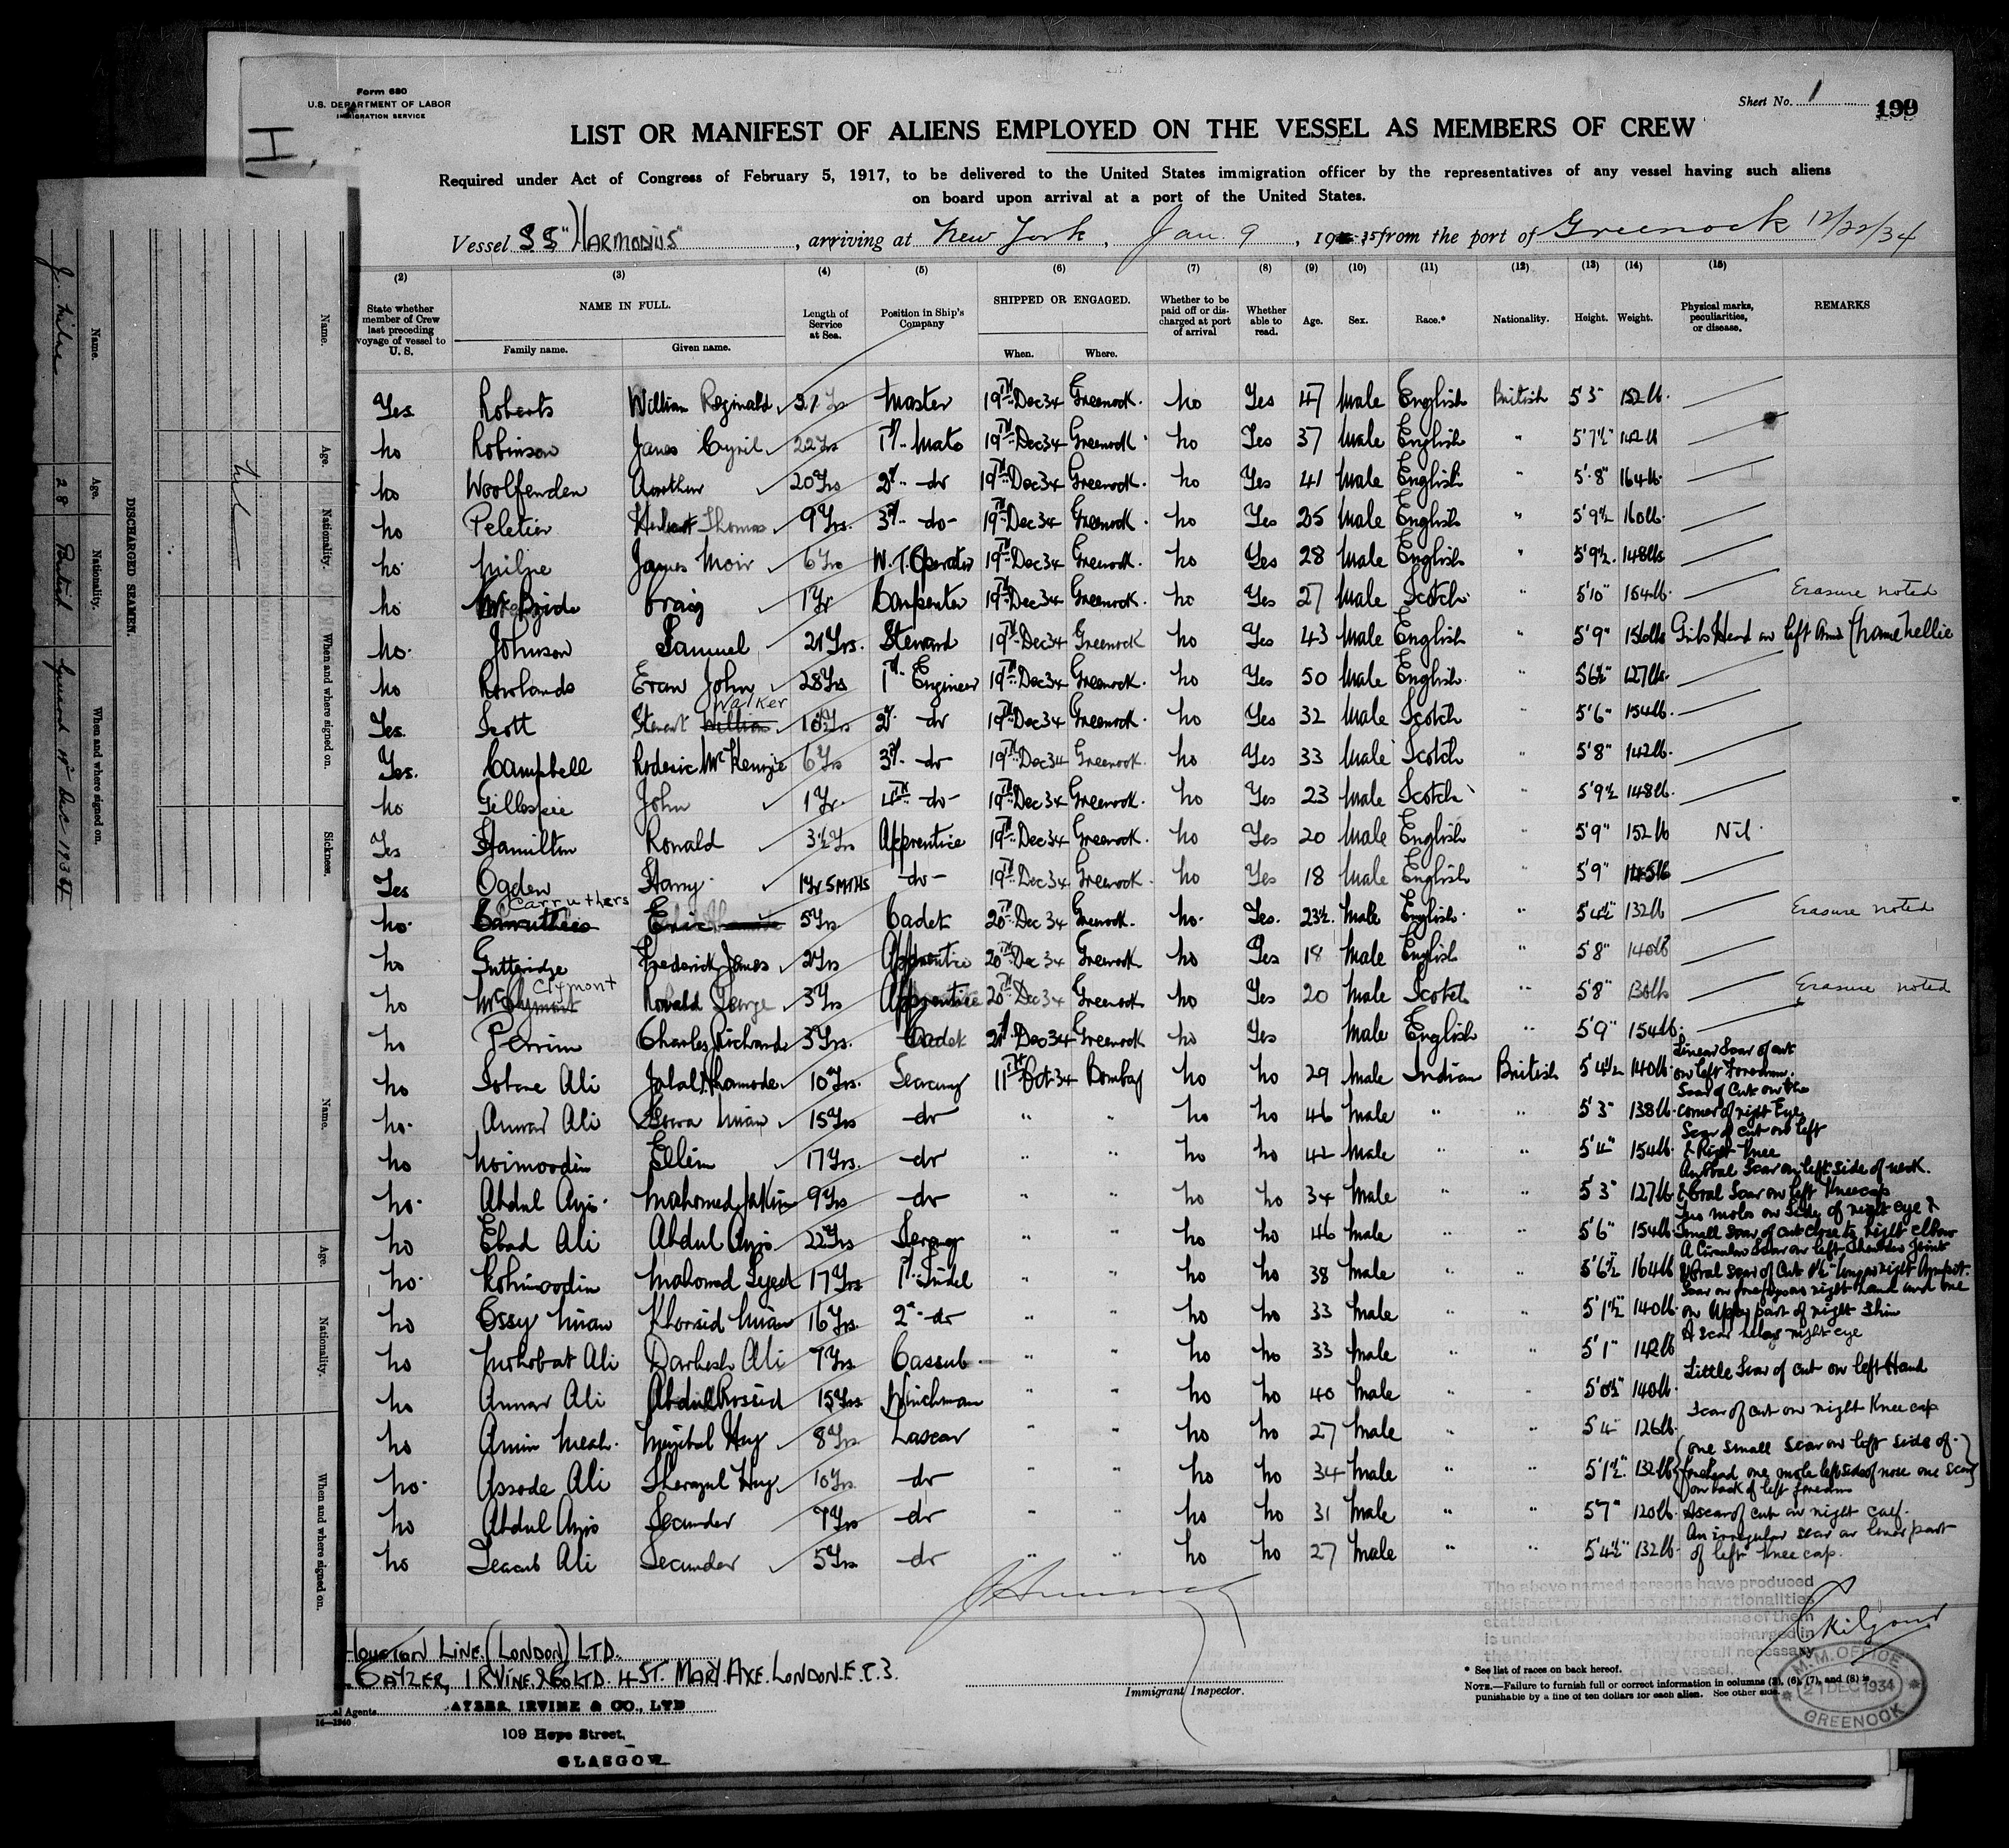 Form 680
U.S. DEPARTMENT OF LABOR
IMMIGRATION SERVICE
Sheet No. 1
199
LIST OR MANIFEST OF ALIENS EMPLOYED ON THE VESSEL AS MEMBERS OF CREW
Required under Act of Congress of February 5, 1917, to be delivered to the United States immigration officer by the representatives of any vessel having such aliens
on board upon arrival at a port of the United States.
Vessel SS "HARMODIUS", arriving at New York, Jan 9, 1935 from the port of Greenock 12/22/34
(2) (3) (4) (5) (6) (7) (8) (9) (10) (11) (12) (13) (14) (15)
State whether member of Crew last preceding voyage of vessel to U. S. NAME IN FULL. Family name. Given name. Length of Service at Sea. Position in Ship's Company SHIPPED OR ENGAGED. When. Where. Whether to be paid off or discharged at port of arrival Whether able to read. Age. Sex. Race.* Nationality. Height. Weight. Physical marks, peculiarities, or disease. REMARKS
Yes Roberts William Reginald 31 Yrs Master 19TH Dec 34 Greenock. No Yes 47 Male English British 5'3" 152 lb.
No Robinson James Cyril 22 Yrs 1st Mate 19TH Dec 34 Greenock No Yes 37 Male English " 5'7½" 142 lb
No Woolfenden 20 Yrs 2nd do 19TH Dec 34 Greenock. No Yes 41 Male English " 5'8" 164 lb.
No Peletier Herbert Thomas 9 Yrs. 3rd do 19TH Dec 34 Greenock. No Yes 25 Male English " 5'9½ 160 lb.
No Milne James Moir 6 Yrs W.T. Operator 19TH Dec 34 Greenock. No Yes 28 Male English " 5'9½. 148 lbs
No McBride Craig 1 Yr Carpenter 19TH Dec 34 Greenock. No Yes 27 Male Scotch " 5'10" 154 lb. Erasure noted
No. Johnson Samuel 21 Yrs. Steward 19TH Dec 34 Greenock No Yes 43 Male English " 5'9" 156 lbs Girls Head on left Arm (name Nellie
No Rowlands Evan John 28 Yrs 1st Engineer 19TH Dec 34 Greenock. No Yes 50 Male English " 5'6½" 127 lbs.
Yes. Scott Stewart Walker 10½ Yrs 2nd do 19TH Dec 34 Greenock. No Yes 32 Male Scotch " 5'6" 154 lb.
Yes. Campbell Roderic McKenzie 6 Yrs 3rd do 19TH Dec 34 Greenock. No Yes 33 Male Scotch " 5'8" 142 lb.
No Gillespie John 1 Yr. 4TH do 19TH Dec 34 Greenock. No Yes 23 Male Scotch " 5'9½ 148 lb.
Yes Hamilton Ronald 3½ Yrs Apprentice 19TH Dec 34 Greenock. No Yes 20 Male English " 5'9" 152 lb Nil.
Yes Ogden Harry 1 Yr 5 MTHS do 19TH Dec 34 Greenock. No Yes 18 Male English " 5'9" 145 lb
No. Carruthers Eric 5 Yrs Cadet 20TH Dec 34 Greenock. No. Yes. 23½. Male English " 5'4½" 132 lb Erasure noted
No Gutteridge Frederick James 2 Yrs Apprentice 20TH Dec 34 Greenock No Yes 18 Male English 5'8" 140 lb
No McClymont Ronald George 3 Yrs Apprentice 20TH Dec 34 Greenock No Yes 20 Male Scotch " 5'8" Erasure noted
No Perrim Charles Richards 3 Yrs. Cadet 21st Dec 34 Greenock No Yes Male English " 5'9" 154 lb.
No Sobane Ali 10 Yrs. Seacunny 11TH Oct 34 Bombay No No 29 Male Indian British 5'4½ 140 lb. Linear Scar of cut on left Forearm.
No. Anwar Ali 15 Yrs do " " No No 46 Male " " 5'3" 138 lb. Scar of Cut on the corner of right Eye
No Noimoodin Ellim 17 Yrs. do " " No No 42 Male " " 5'4" 154 lb. Scar of cut on left & Right Knee
No. Abdul Ajis 9 Yrs do " " No No 34 Male " " 5'3" 127 lb. An Oval Scar on left side of neck. & Oral Scar on left Kneecap
No Ebad Ali Abdul Ajis 22 Yrs Serang " " No No 46 Male " " 5'6" 154 lb. Two moles on side of right eye & Small Scar of cut close to right elbow
No. Kohimoodin Mahomed Syed 17 Yrs 1st Tindel " " No No 38 Male " " 5'6½" 164 lb A Circular Scar on left Shoulder Joint & Oral Scar of Cut 1½" long on right Armpit.
No Ossy Mian Khorsid Mian 16 Yrs. 2nd do " " No No 33 Male " " 5'1½" 140 lb. Scar on right hand and one on Upper part of right Shin
No Mohobat Ali Darbesh Ali 7 Yrs Cassub " " No No 33 Male " " 5'1" 142 lb A scar below right eye
No Anwar Ali Abdul Rossid 15 Yrs Winchman " " No No 40 Male " " 5'0½" 140 lb. Little Scar of cut on left Hand
No Amin Meah. 8 Yrs Lascar " " No No 27 Male " " 5'4" 126 lb. Scar of cut on right Knee cap
No. Assode Ali 10 Yrs. do " " No No 34 Male " " 5'1½" 132 lb (one small scar on left side of forehead one mole left side of nose one scar on back of left forearm)
No Abdul Ajis Secunder 7 Yrs do " " No No 31 Male " 5'7" 120 lb. A scar of cut on right calf.
No Seacub Ali Secunder 5 Yrs do " " No No 27 Male " " 5'4½" 132 lb. An irregular scar on lower part of left Knee cap.
The above named persons have produced
HOUSTON LINE (LONDON) LTD.
CAYZER, IRVINE & CO LTD. 4 ST. MARY AXE. LONDON. E.C.3.
AYZER, IRVINE & CO., LTD
Agents
16—1940
109 Hope Street,
GLASGOW
Immigrant Inspector.
* See list of races on back hereof.
NOTE.—Failure to furnish full or correct information in columns (2), (6), (7), and (8) is
punishable by a fine of ten dollars for each alien. See other side.
M.M. OFFICE
21 DEC 1934
GREENOCK
DISCHARGED SEAMEN.
Name. Age. Nationality. When and where signed on.
J. Milne 28 British Greenock 19th Dec 1934
Name. Age. Nationality. When and where signed on. Sickness.
Nil
Name. Age. Nationality. When and where signed on.